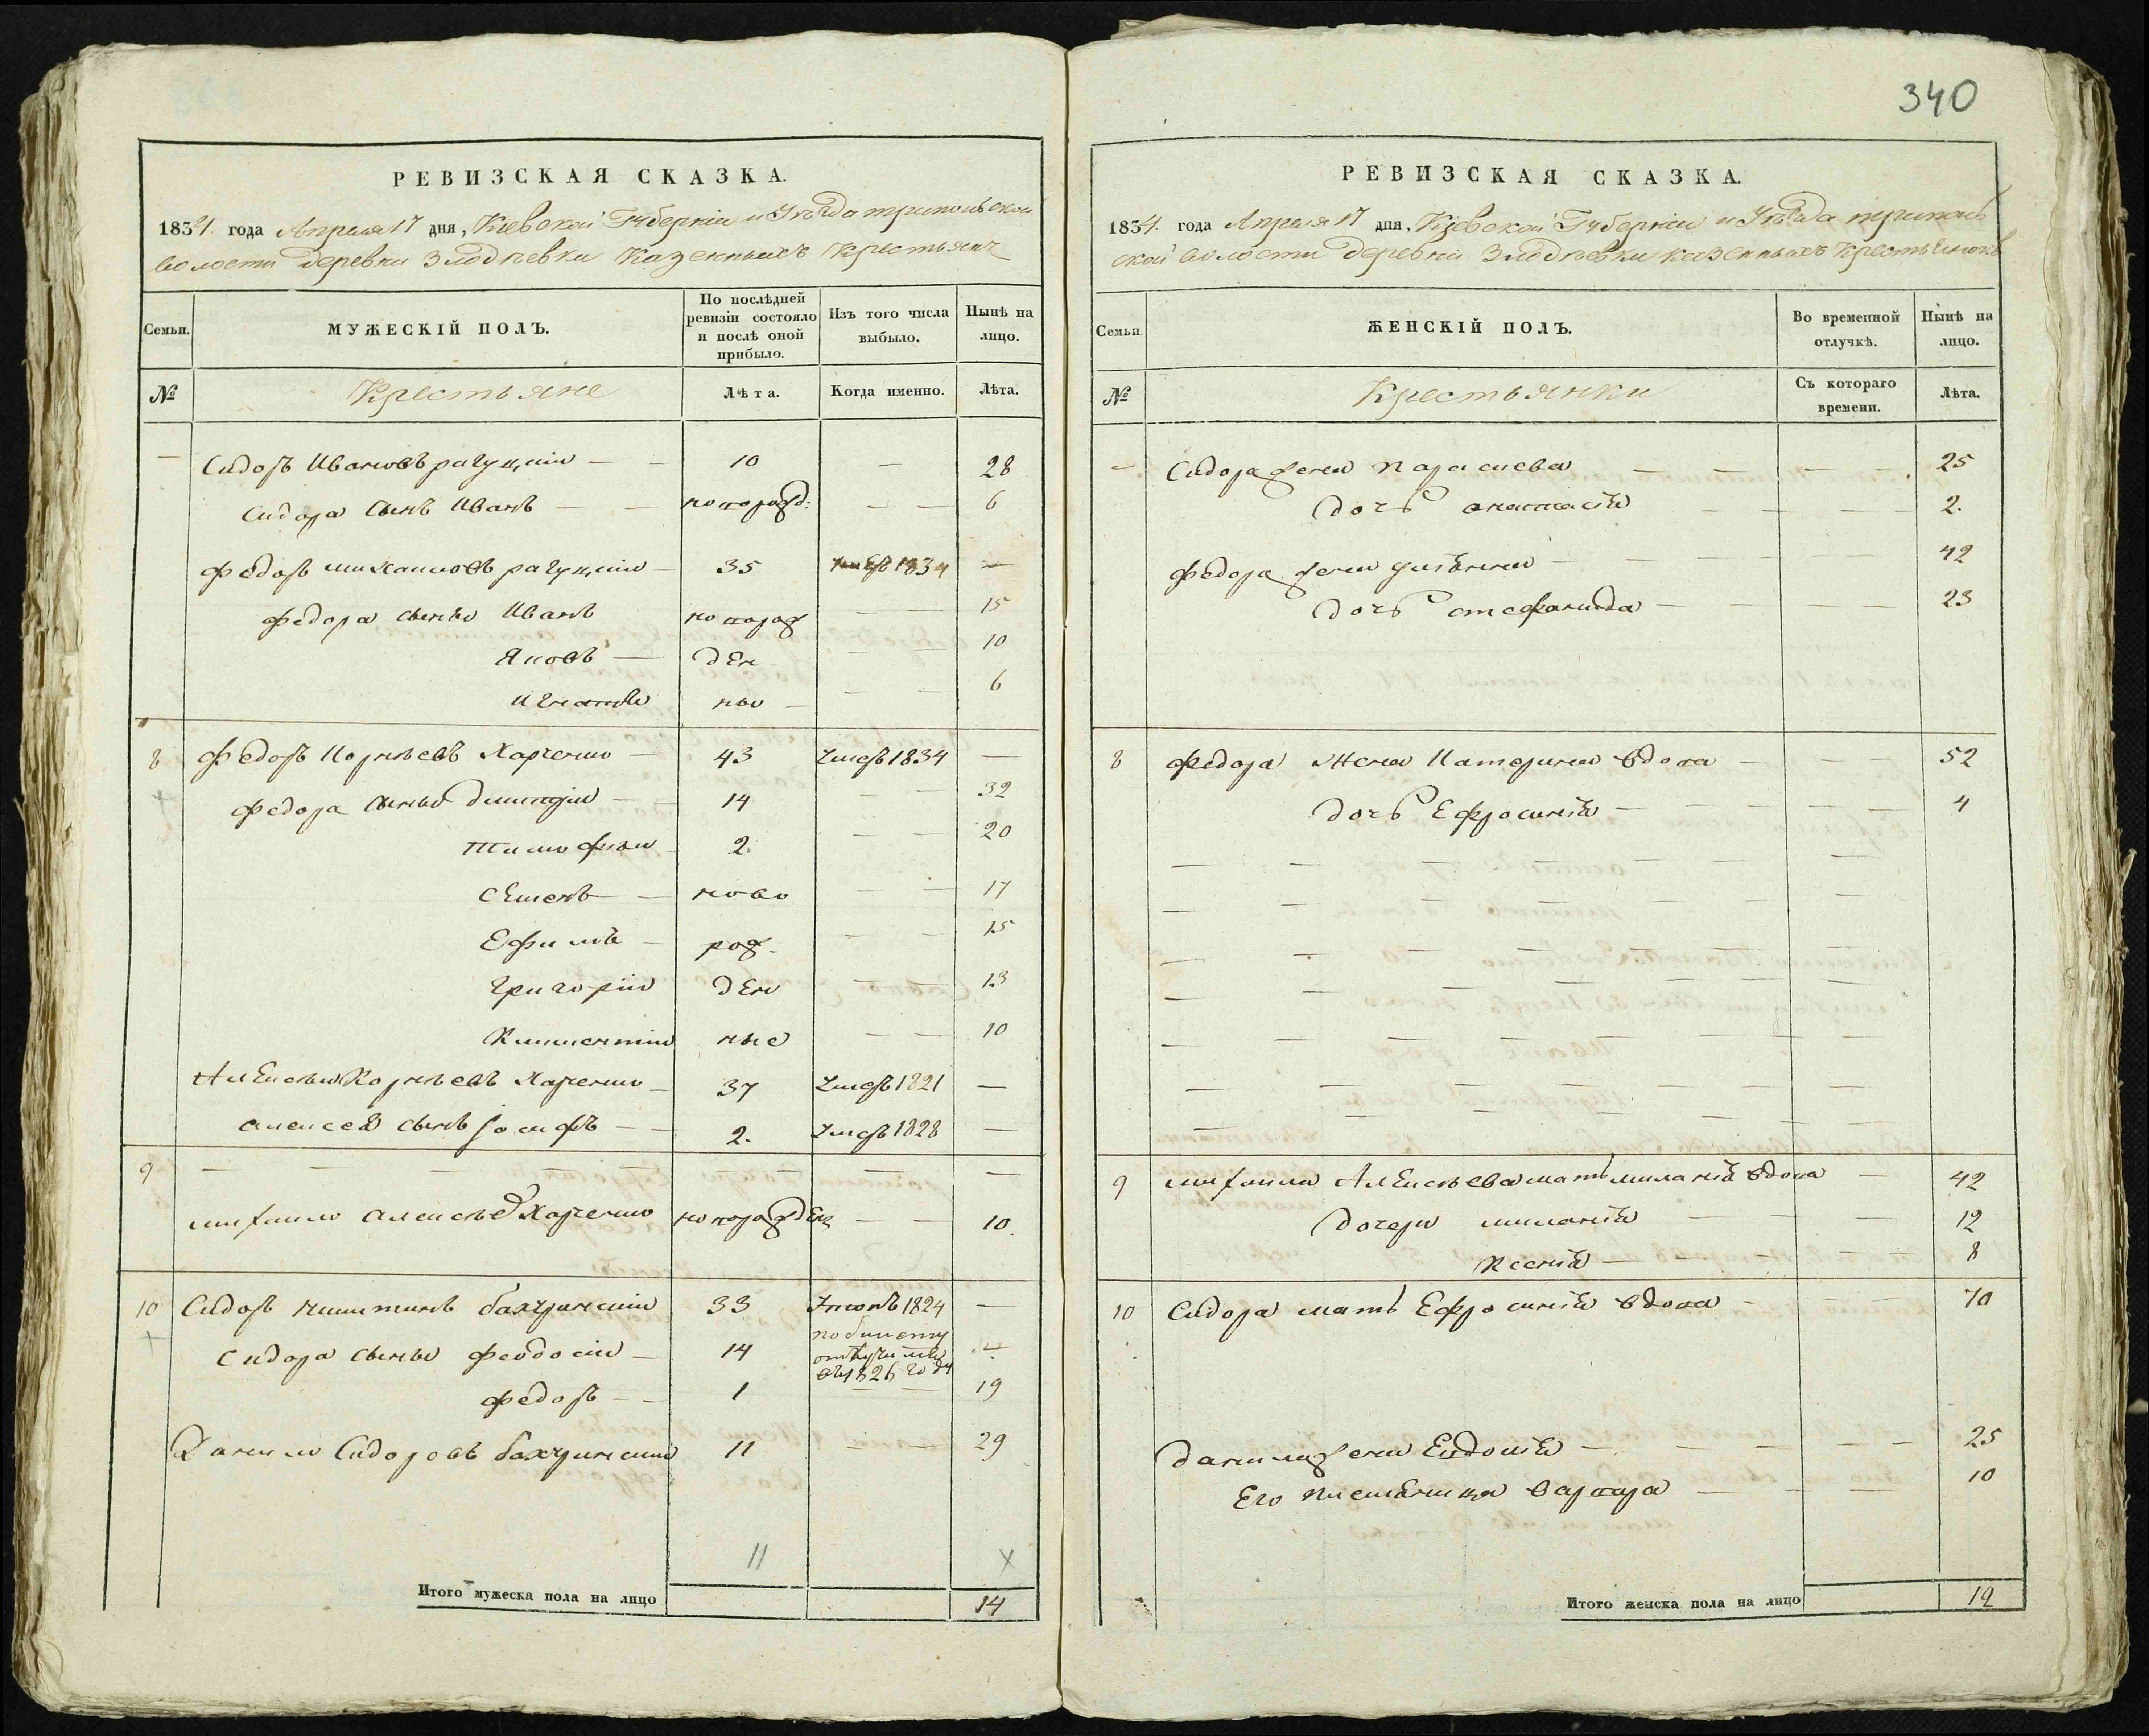 340
РЕВИЗСКАЯ СКАЗКА.
1834. года Апреля 17 дня, Киевской Губерніи и Уезда трипольской
волости деревни Злодѣевки Казенныхъ Крестьянъ
Семьи.
МУЖЕСКІЙ ПОЛЪ.
По послѣдней ревизіи состояло и послѣ оной прибыло.
Изъ того числа выбыло.
Нынѣ на лицо.
№
Крестьяне
Лѣта.
Когда именно.
Лѣта.
— Сидоръ Ивановъ — — 10 — 28
Сидора сынъ Иванъ — — новорожд: — — 6
Федоръ михаиловъ — 35 умеръ 1834 —
федора сыны Иванъ новорож — — 15
Яковъ — ден — — 10
игнатій ные — — — 6
8 Федоръ Корнѣевъ Харченко — 43 Умеръ 1834 —
федора сыны димитрій — 14 — — 32
тимофѣй 2. — — 20
семенъ — ново — — 17
Ефимъ — рож- — — 15
григорій ден — — 13
Климентій ные — — 10
Алексѣй Корнѣевъ Харченко — 37 Умеръ 1821 —
алексея сынъ Іосифъ — — 2. Умеръ 1828 —
9 — — — — — —
михаило алексѣевъ Харченко новорожден — — 10.
10 Сидоръ никитинъ бахуринскій 33 1824 —
Сидора сыны феодосій — 14 по билету
отлучился
въ 1826 году
федоръ — — 1 — — 19
Данило Сидоровъ бахуринскій 11 — — 29
11 X
Итого мужеска пола на лицо 14
РЕВИЗСКАЯ СКАЗКА.
1834. года Апреля 17 дня, Кіевской Губерніи и Уезда триполь
ской волости деревни Злодѣевки казенныхъ Крестьянокъ
Семьи.
ЖЕНСКІЙ ПОЛЪ.
Во временной отлучкѣ.
Нынѣ на лицо.
№
Крестьянки
Съ котораго времени.
Лѣта.
— Сидора жена Параскева — — — — 25
дочь анастасія — — — — 2.
федора жена уліянна — — — — 42
дочь стефанида — — — 23
8 федора жена Катерина вдова — — — 52
дочь Ефросинія — — — — — 4
9 михаила Алексѣева мать миланія вдова — 42
дочери миланія — — — 12
Ксенія — — — — 8
10 Сидора мать Ефросинія вдова — — — 70
данила жена Евдокія — — — — — 25
Его племѣнница варвара — — — 10
Итого женска пола на лицо 12